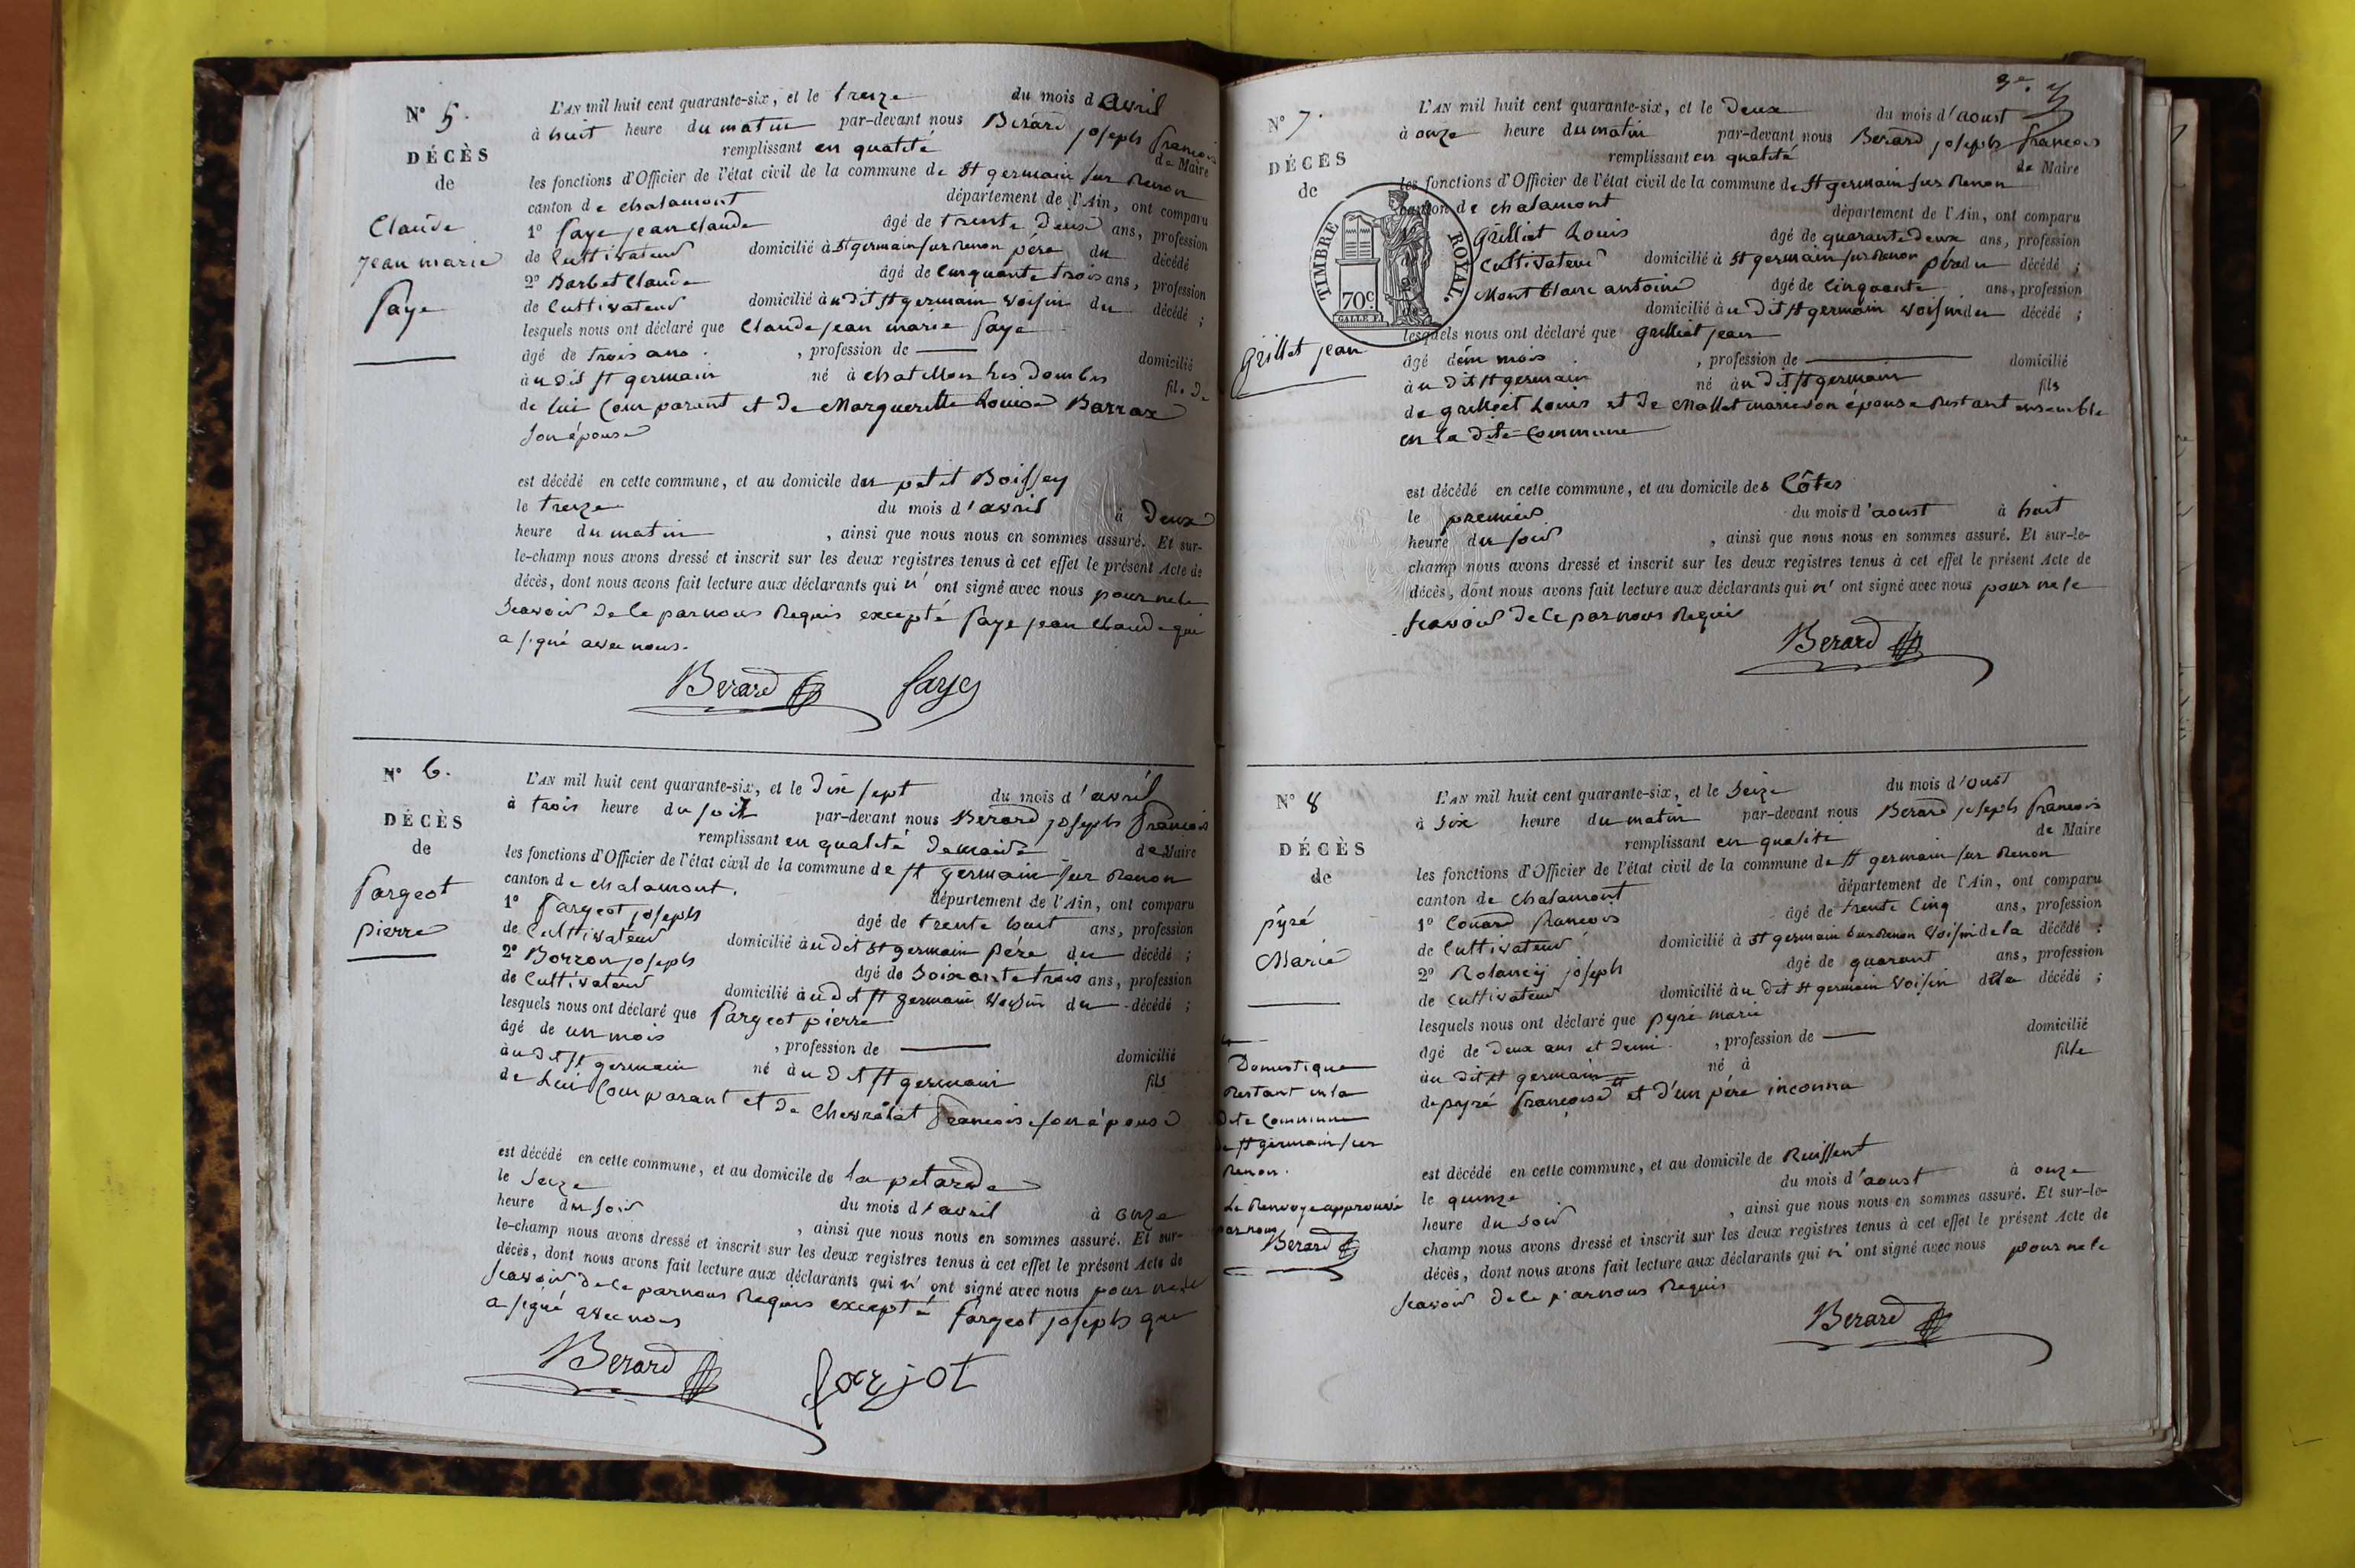 N° 5.
DÉCÈS
de
Claude
Jean marie
faye
L'AN mil huit cent quarante-six, et le treize du mois d'avril
à huit heure du matin par-devant nous Berard joseph francois
remplissant en qualité de Maire
les fonctions d'Officier de l'état civil de la commune de St germain sur Renon
canton de chalamont département de l'Ain, ont comparu
1° faye jean claude âgé de trente deux ans, profession
de Cultivateur domicilié à St germain sur Renon père du décédé
2° Barbet Claude âgé de Cinquante trois ans, profession
de Cultivateur domicilié au dit St germain voisin du décédé ;
lesquels nous ont déclaré que Claude jean marie faye
âgé de trois ans. , profession de — domicilié
au dit St germain né à chatillon les Dombes fils de
de lui Comparent et de Margueritte Louise Barrax
son épouse
est décédé en cette commune, et au domicile du petit Boissey
le treize du mois d'avril à Deux
heure du matin , ainsi que nous nous en sommes assuré. Et sur-
le-champ nous avons dressé et inscrit sur les deux registres tenus à cet effet le présent Acte de
décès, dont nous avons fait lecture aux déclarants qui n'ont signé avec nous pour ne le
scavoir de ce par nous Requis excepté faye jean Claude qui
a signé avec nous.
Berard faye
N° 6.
DÉCÈS
de
fargeot
pierre
L'AN mil huit cent quarante-six, et le Dix sept du mois d'avril
à trois heure du soir par-devant nous Berard joseph francois
remplissant en qualité de maire de Maire
les fonctions d'Officier de l'état civil de la commune de St germain sur Renon
canton de chalamont. département de l'Ain, ont comparu
1° fargeot joseph âgé de trente huit ans, profession
de Cultivateur domicilié au dit St germain père du décédé ;
2° Borron joseph âgé de Soixante trois ans, profession
de Cultivateur domicilié au dit St germain voisin du décédé ;
lesquels nous ont déclaré que fargeot pierre
âgé de un mois , profession de — domicilié
au dit St germain né au dit St germain fils
de Lui Comparant et de Chevrolat francoise son épouse
est décédé en cette commune, et au domicile de la petarde
le Seize du mois d'avril à onze
heure du soir , ainsi que nous nous en sommes assuré. Et sur-
le-champ nous avons dressé et inscrit sur les deux registres tenus à cet effet le présent Acte de
décès, dont nous avons fait lecture aux déclarants qui n'ont signé avec nous pour ne le
scavoir de ce par nous Requis excepté fargeot joseph qui
a signé avec nous
Berard farjot
3e.
N° 7.
DÉCÈS
de
Grillet jean
TIMBRE ROYAL.
70c
L'AN mil huit cent quarante-six, et le Deux du mois d'aoust
à onze heure du matin par-devant nous Berard joseph francois
remplissant en qualité de Maire
les fonctions d'Officier de l'état civil de la commune de St germain sur Renon
canton de chalamont département de l'Ain, ont comparu
Grilliet Louis âgé de quarante deux ans, profession
Cultivateur domicilié à St germain sur Renon père du décédé ;
Mont blanc antoine âgé de Cinquante ans, profession
domicilié au dit St germain voisin du décédé ;
lesquels nous ont déclaré que grilliet jean
âgé d'un mois , profession de — domicilié
au dit St germain né au dit St germain fils
de grilliet Louis et de Mallet marie son épouse Restant ensemble
en la dite Commune
est décédé en cette commune, et au domicile des Côtes
le premier du mois d'aoust à huit
heure du soir , ainsi que nous nous en sommes assuré. Et sur-le-
champ nous avons dressé et inscrit sur les deux registres tenus à cet effet le présent Acte de
décès, dont nous avons fait lecture aux déclarants qui n'ont signé avec nous pour ne le
scavoir de ce par nous Requis
Berard
N° 8
DÉCÈS
de
pyré
Marie
Domestique
Restant en la
dite Commune
de St germain sur
Renon.
Le Renvoye approuvé
par nous
Berard
L'AN mil huit cent quarante-six, et le Seize du mois d'oust
à Six heure du matin par-devant nous Berard joseph francois
remplissant en qualité de Maire
les fonctions d'Officier de l'état civil de la commune de St germain sur Renon
canton de Chalamont département de l'Ain, ont comparu
1° Couard francois âgé de trente Cinq ans, profession
de Cultivateur domicilié à St germain sur Renon voisin de la décédé ;
2° Rolancy joseph âgé de quarant ans, profession
de Cultivateur domicilié au dit St germain voisin de la décédé ;
lesquels nous ont déclaré que pyré marie
âgé de deux ans et demi. , profession de — domicilié
au dit St germain né à fille
de pyré françoise et d'un père inconnu
est décédé en cette commune, et au domicile de Ruissent
le quinze du mois d'aoust à onze
heure du soir , ainsi que nous nous en sommes assuré. Et sur-le-
champ nous avons dressé et inscrit sur les deux registres tenus à cet effet le présent Acte de
décès, dont nous avons fait lecture aux déclarants qui n'ont signé avec nous pour ne le
scavoir de ce par nous Requis
Berard